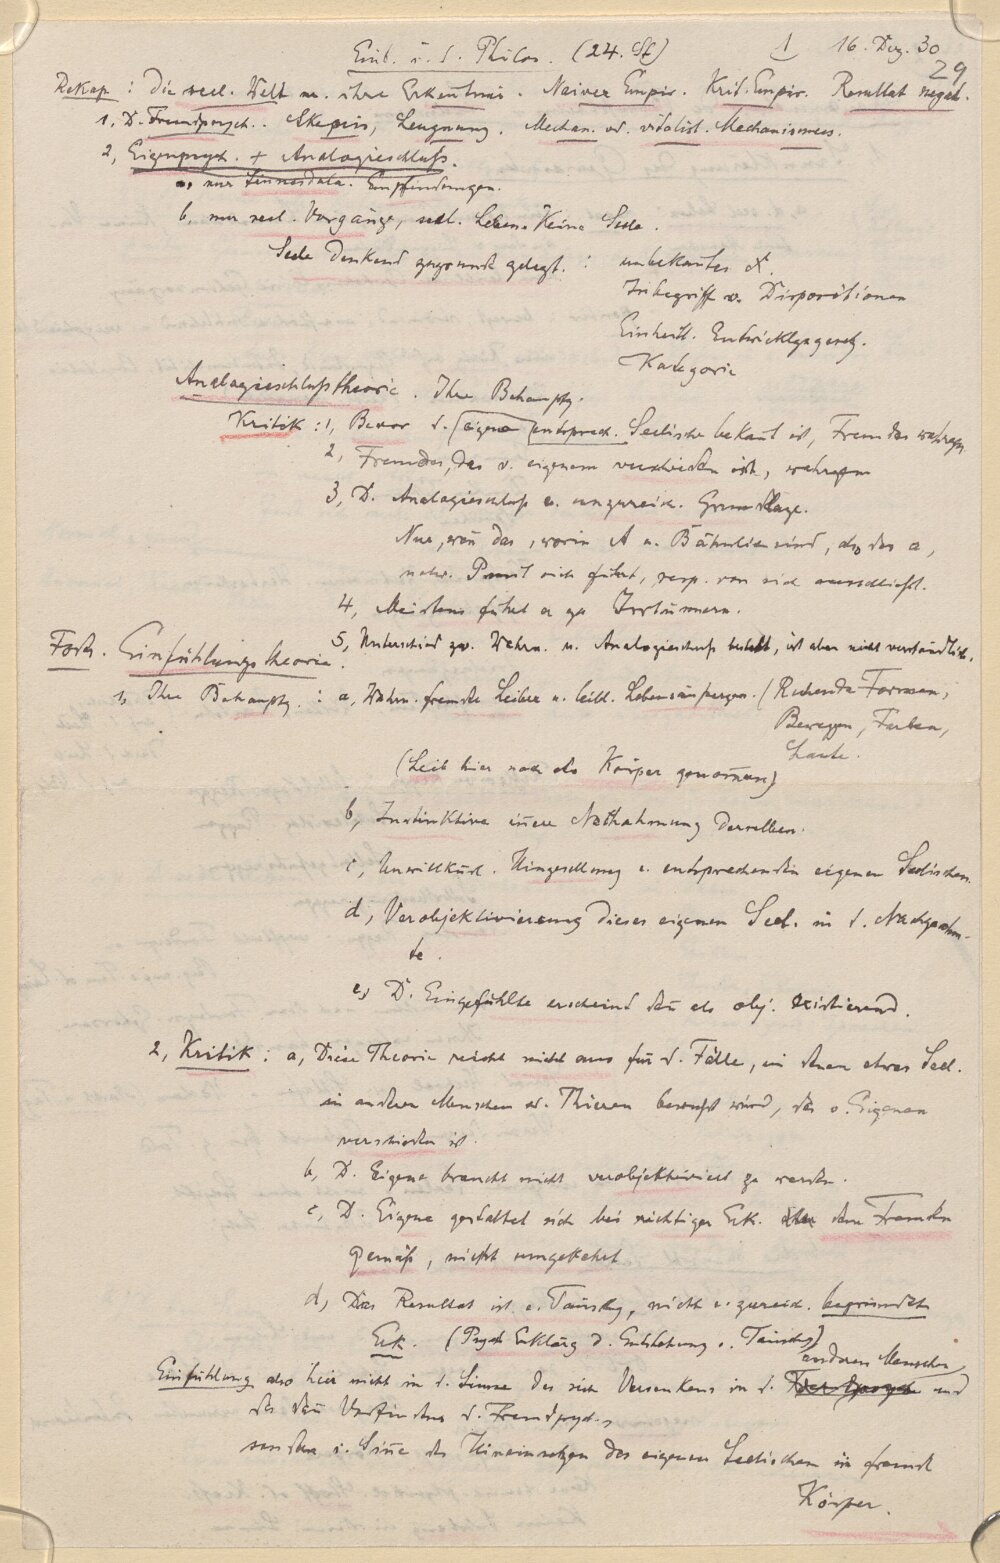 Einl. i. d. Philos. (24. St) 1 16. Dez. 30
29
Rekap: Die seel. Welt u. ihre Erkentnis. Naiver Empir. Krit. Empir. Resultat negat.
1, D. Fremdpsych.. Skepsis, Leugnung. Mechan. od. vitalist. Mechanismus.
2, Eigenpsych. + Analogieschluß.
a, nur Sinnesdata. Empfindungen.
b, nur seel. Vorgänge, seel. Leben. Keine Seele.
Seele denkend zugrunde gelegt. : unbekantes X.
Inbegriff v. Dispositionen
Einheitl. Entwicklgsgesetz.
Kategorie
Analogieschlußtheorie. Ihre Behauptg.
Kritik: 1, Bevor d. eigene entsprech. Seelische bekant ist, Fremdes wahrgen
2, Fremdes, das v. eigenem verschieden ist, wahrgen
3, D. Analogieschluß e. unzureich. Grundlage.
Nur, wen das, worin A u. B ähnlich sind, also das a,
notw. P mit sich führt, resp. von sich ausschließt.
4, Meistens führt er zu Irrtümern.
5, Unterschied zw. Wahrn. u. Analogieschluß besteht, ist aber nicht verständlich.
Forts. Einfühlungstheorie.
1, Ihre Behauptg. : a, Wahrn. fremder Leiber u. leibl. Lebensäußergen. (Ruhende Formen,
Beweggen, Farben,
Laute.
(Leib hier noch als Körper genommen)
b, Instinktive innere Nachahmung derselben.
c, Unwillkürl. Hinzu e. entsprechenden eigenen Seelischen.
d, Verobjektivierung dieses eigenen Seel. in d. Nachgeahm-
te.
e, D. Eingefühlte erscheint dan als obj. existierend.
2, Kritik: a, Diese Theorie reicht nicht aus für d. Fälle, in denen etwas Seel.
in anderen Menschen od. Thieren bewußt wird, das v. Eigenen
verschieden ist.
b, D. Eigene braucht nicht verobjektiviert zu werden.
c, D. Eigene gestaltet sich bei richtiger Erk. dem Fremden
gemäß, nicht umgekehrt
d, Das Resultat ist e. Täuschg, nicht e. zureich. begründete
Erk. (Psych Erklärg d. Entstehung e. Täuschg)
anderen Menschen
Einfühlung also hier nicht in d. Sinne des sich Versenkens in d. und
des dan Vorfindens d. Fremdpsych.,
sondern i. Sine des Hineinsetzen des eigenen Seelischen in fremde
Körper.